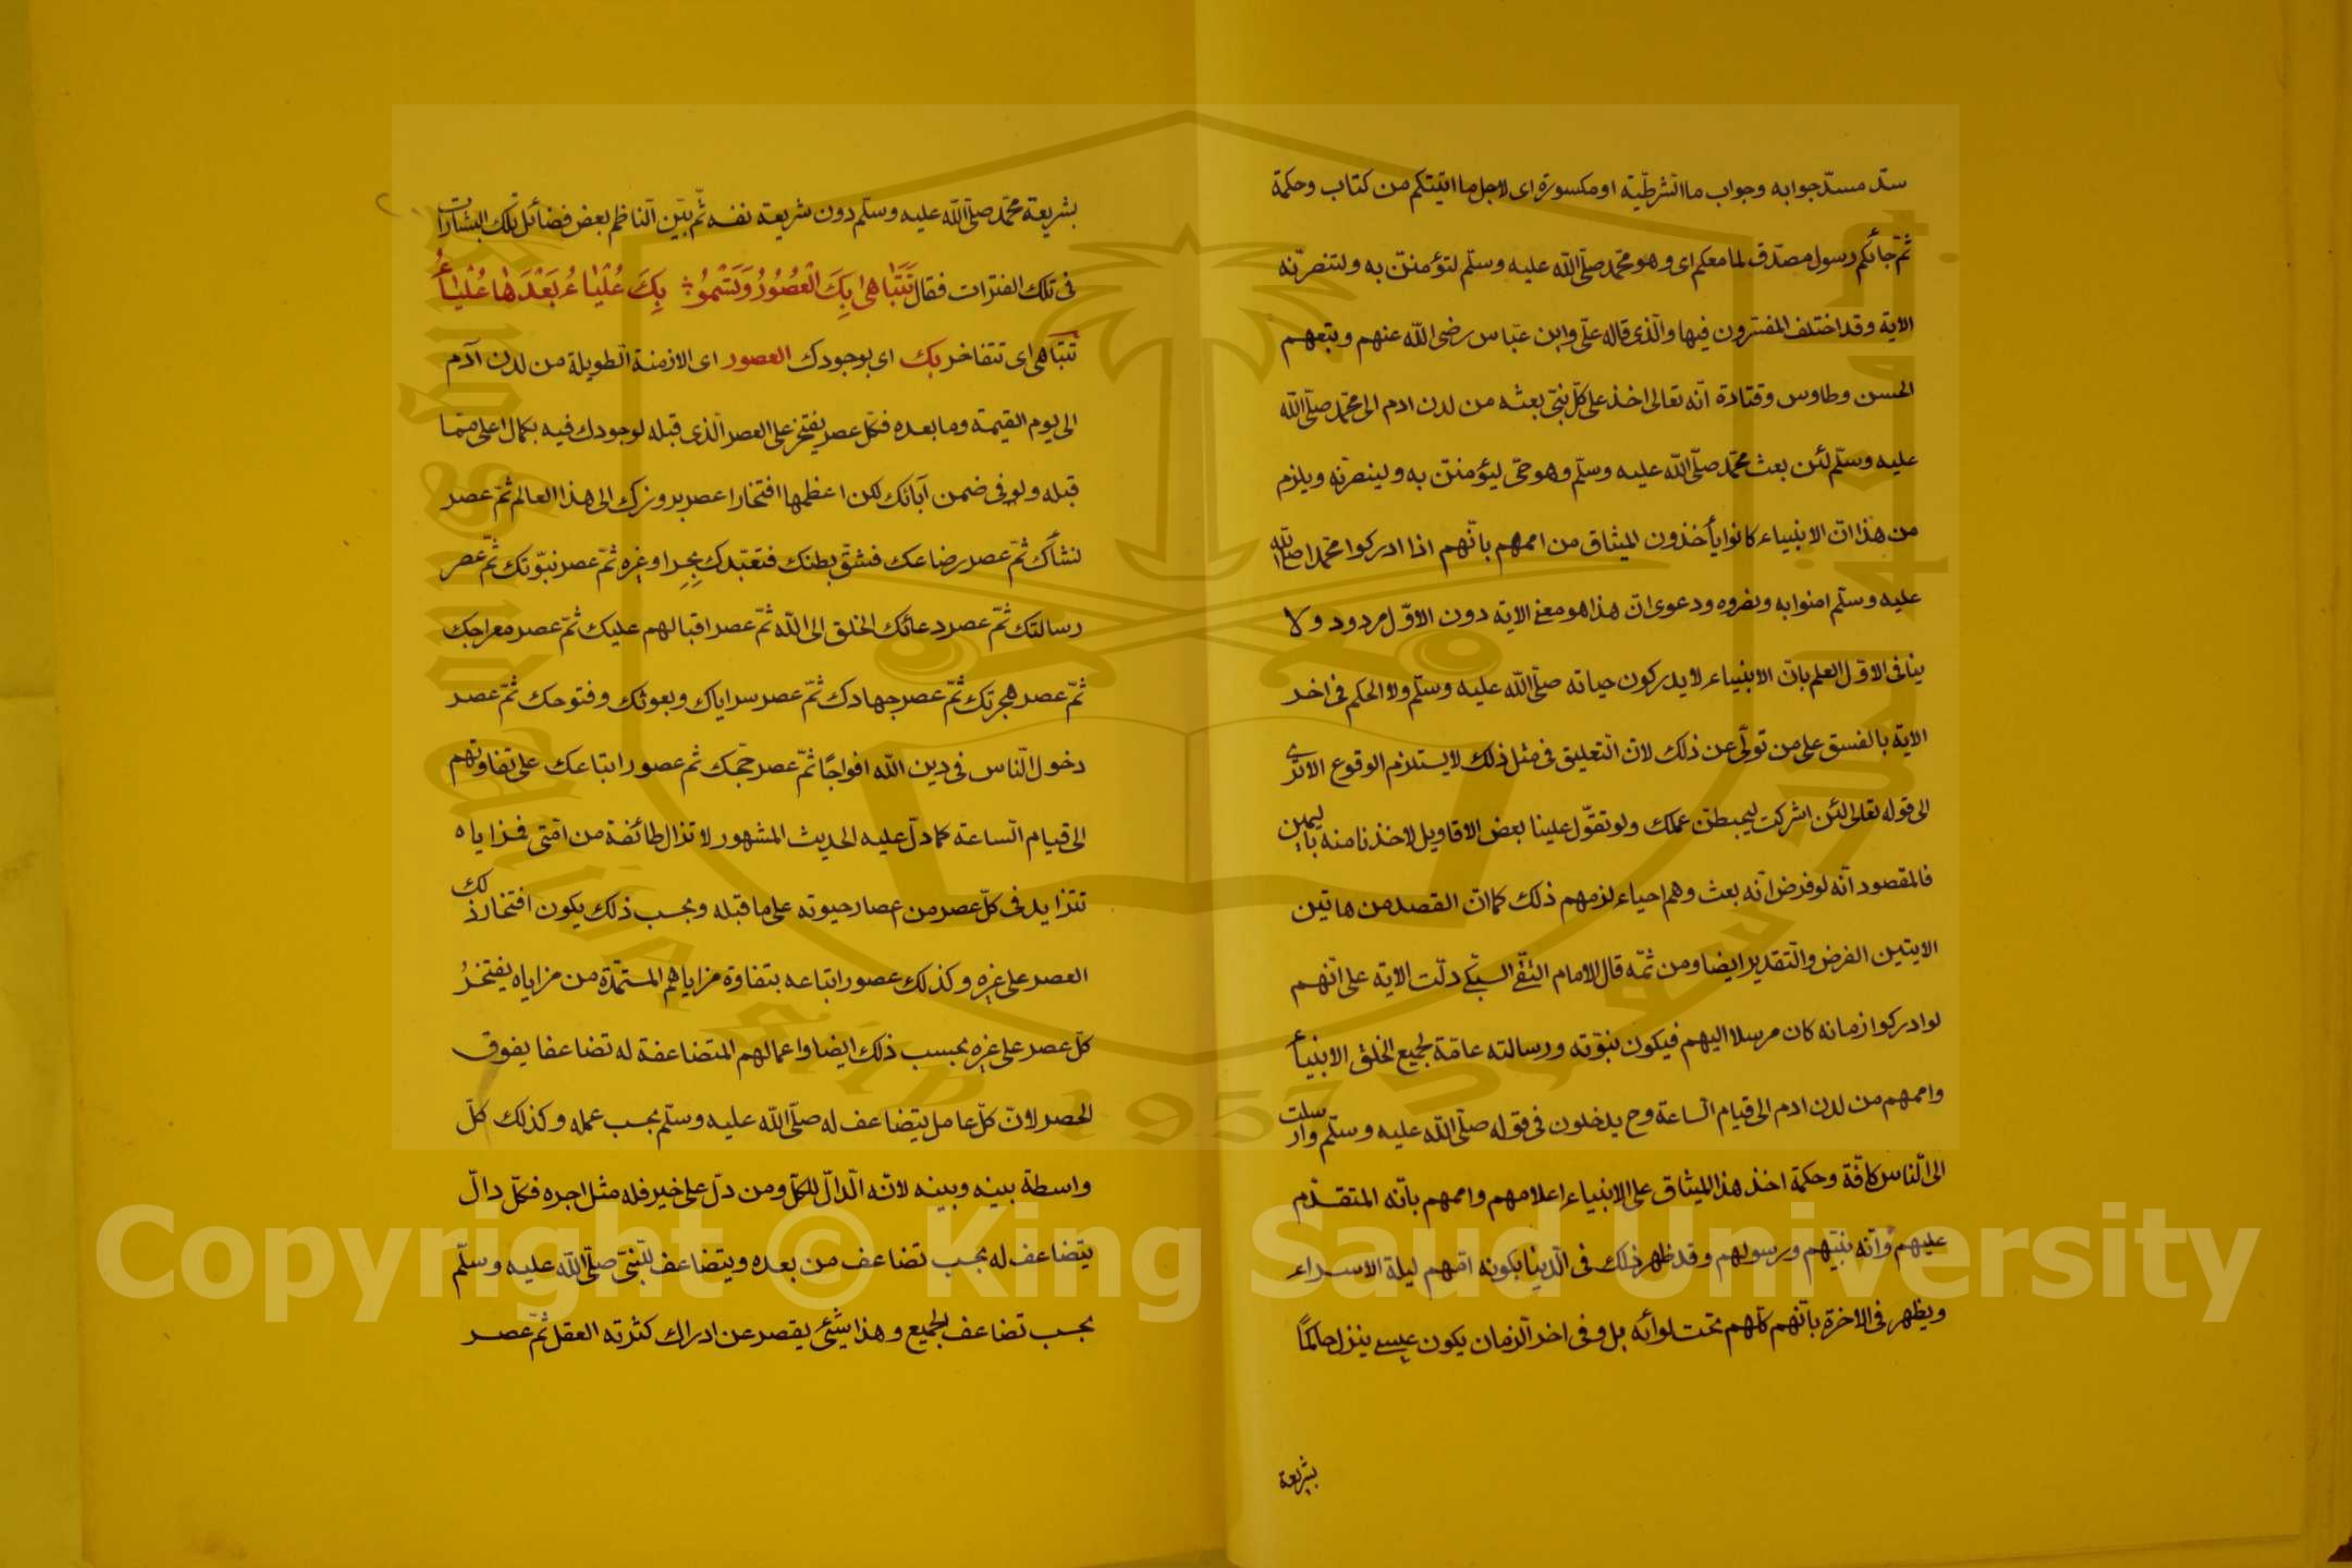 سدّ مسدّ جوابه وجواب ما الشرطيّة او مكسورة اى لاجل ما اتيتكم من كتاب وحكمة
ثمّ جائكم رسول مصدّق لما معكم اى وهو محمّد صلّى اللّه عليه وسلّم لتؤمننّ به ولتنصرنّه
الاية وقد اختلف المفسّرون فيها والّذى قاله علىّ وابن عبّاس رضى اللّه عنهم وتبعهم
الحسن وطاوس وقتادة انّه تعالى اخذ على كلّ نبىّ بعثه من لدن ادم الى محمّد صلّى اللّه
عليه وسلّم لئن بعث محمّد صلّى اللّه عليه وسلّم وهو حىّ ليؤمننّ به ولينصرنّه ويلزم
من هذا انّ الانبياء كانوا يأخذون الميثاق من اممهم بانّهم اذا ادركوا محمّدا صلّى اللّه
عليه وسلّم امنوا به ونصروه ودعوى انّ هذا هو معنى الاية دون الاوّل مردود ولا
ينافى الاوّل العلم بانّ الانبياء لا يدركون حياته صلّى اللّه عليه وسلّم ولا الحكم فى اخر
الاية بالفسق على من تولّى عن ذلك لانّ التعليق فى مثل ذلك لا يستلزم الوقوع الا ترى
الى قوله تعالى لئن اشركت ليحبطنّ عملك ولو تقوّل علينا بعض الاقاويل لاخذنا منه باليمين
فالمقصود انّه لو فرض انّه بعث وهم احياء لزمهم ذلك كما انّ القصد من هاتين
الايتين الفرض والتّقدير ايضا ومن ثمّه قال الامام التّقى السّبكى دلّت الاية على انّهم
لو ادركوا زمانه كان مرسلا اليهم فيكون نبوّته ورسالته عامّة لجميع الخلق الانبياء
واممهم من لدن ادم الى قيام السّاعة وح يدخلون فى قوله صلّى اللّه عليه وسلّم وارسلت
الى النّاس كافّة وحكمة اخذ هذا الميثاق على الانبياء اعلامهم واممهم بانّه المتقدّم
عليهم وانّه نبيّهم ورسولهم وقد ظهر ذلك فى الدّنيا بكونه امّهم ليلة الاسراء
ويظهر فى الاخرة بانّهم كلّهم تحت لوائه بل وفى اخر الزمان يكون عيسى ينزل حاكمًا
بشريعة
بشريعة محمّد صلّى اللّه عليه وسلّم دون شريعة نفسه ثمّ بيّن النّاظم بعض فضائل تلك البشارات
فى تلك الفترات فقال تَتَبَاهى بِكَ الْعُصُورُ وَتَسْمُوْ بِكَ عُلْيَاءُ بَعْدَهَا عُلْيَاءُ
تتباهى اى تتفاخر بك اى بوجودك العصور اى الازمنة الطّويلة من لدن آدم
الى يوم القيمة وما بعده فكلّ عصر يفتخر على العصر الّذى قبله لوجودك فيه بكمال اعلى ممّا
قبله ولو فى ضمن آبائك لكن اعظمها افتخارا عصر بروزك الى هذا العالم ثمّ عصر
نشأك ثمّ عصر رضاعك فشقّ بطنك فتعبّدك بحرا وغيره ثمّ عصر نبوّتك ثمّ عصر
رسالتك ثمّ عصر دعائك الخلق الى اللّه ثمّ عصر اقبالهم عليك ثمّ عصر معراجك
ثمّ عصر هجرتك ثمّ عصر جهادك ثمّ عصر سراياك وبعوثك وفتوحك ثمّ عصر
دخول النّاس فى دين اللّه افواجًا ثمّ عصر حجّك ثم عصور اتباعك على تفاوتهم
الى قيام السّاعة كما دلّ عليه الحديث المشهور لا تزال طائفة من امّتى فمزاياه
تتزايد فى كلّ عصر من عصار حيوته على ما قبله وبحسب ذلك يكون افتخار ذلك
العصر على غيره وكذلك عصور اتباعه بتفاوة مزاياهم المستمدّة من مزاياه يفتخرُ
كلّ عصر على غيره بحسب ذلك ايضا واعمالهم المتضاعفة له تضاعفا يفوق
الحصر لانّ كلّ عامل يتضاعف له صلّى اللّه عليه وسلّم بحسب عمله وكذلك كلّ
واسطة بينه وبينه لانّه الدّالّ للكلّ ومن دلّ على خير فله مثل اجره فكلّ دالّ
يتضاعف له بحسب تضاعف من بعده ويتضاعف للنّبىّ صلّى اللّه عليه وسلّم
بحسب تضاعف الجميع وهذا شئ يقصر عن ادراك كثرته العقل ثمّ عصر
Copyright © King Saud University
1957